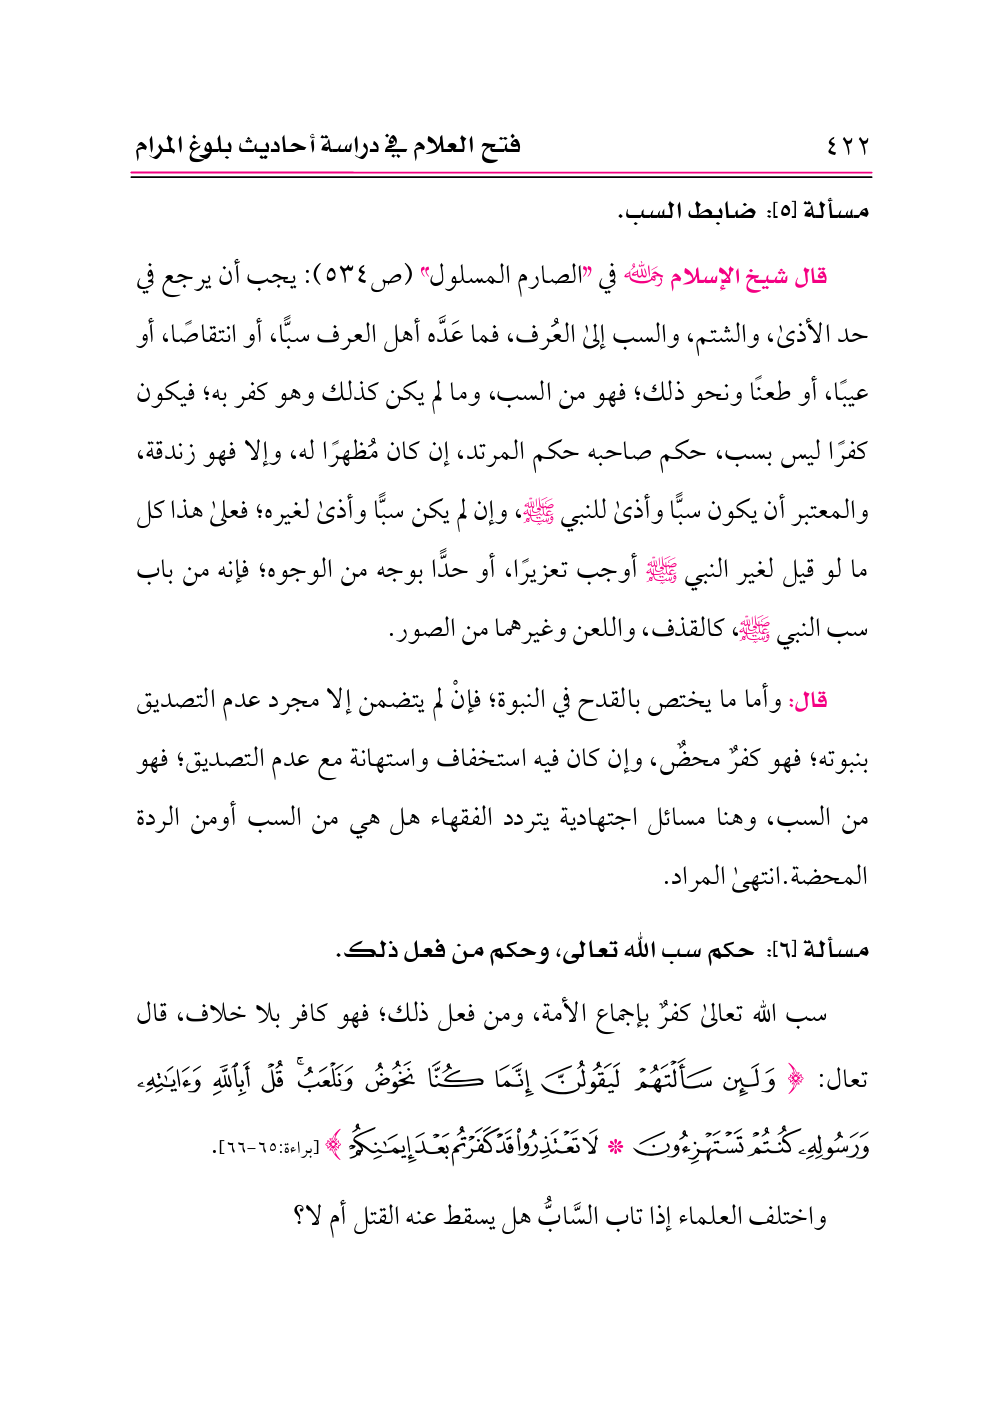 ٤٢٢ فتح العلام في دراسة أحاديث بلوغ المرام
مسألة [٥]: ضابط السب.
قال شيخ الإسلام رحمه الله في "الصارم المسلول" (ص٥٣٤): يجب أن يرجع في
حد الأذىٰ، والشتم، والسب إلىٰ العُرف، فما عَدَّه أهل العرف سبًّا، أو انتقاصًا، أو
عيبًا، أو طعنًا ونحو ذلك؛ فهو من السب، وما لم يكن كذلك وهو كفر به؛ فيكون
كفرًا ليس بسب، حكم صاحبه حكم المرتد، إن كان مُظهرًا له، وإلا فهو زندقة،
والمعتبر أن يكون سبًّا وأذىٰ للنبي ﷺ، وإن لم يكن سبًّا وأذىٰ لغيره؛ فعلىٰ هذا كل
ما لو قيل لغير النبي ﷺ أوجب تعزيرًا، أو حدًّا بوجه من الوجوه؛ فإنه من باب
سب النبي ﷺ، كالقذف، واللعن وغيرهما من الصور.
قال: وأما ما يختص بالقدح في النبوة؛ فإنْ لم يتضمن إلا مجرد عدم التصديق
بنبوته؛ فهو كفرٌ محضٌ، وإن كان فيه استخفاف واستهانة مع عدم التصديق؛ فهو
من السب، وهنا مسائل اجتهادية يتردد الفقهاء هل هي من السب أومن الردة
المحضة.انتهىٰ المراد.
مسألة [٦]: حكم سب الله تعالى، وحكم من فعل ذلك.
سب الله تعالىٰ كفرٌ بإجماع الأمة، ومن فعل ذلك؛ فهو كافر بلا خلاف، قال
تعال: ﴿ وَلَئِن سَأَلۡتَهُمۡ لَيَقُولُنَّ إِنَّمَا كُنَّا نَخُوضُ وَنَلۡعَبُۚ قُلۡ أَبِٱللَّهِ وَءَايَٰتِهِۦ
وَرَسُولِهِۦ كُنتُمۡ تَسۡتَهۡزِءُونَ * لَا تَعۡتَذِرُواْ قَدۡ كَفَرۡتُم بَعۡدَ إِيمَٰنِكُمۡ ﴾ [براءة:٦٥-٦٦].
واختلف العلماء إذا تاب السَّابُّ هل يسقط عنه القتل أم لا؟